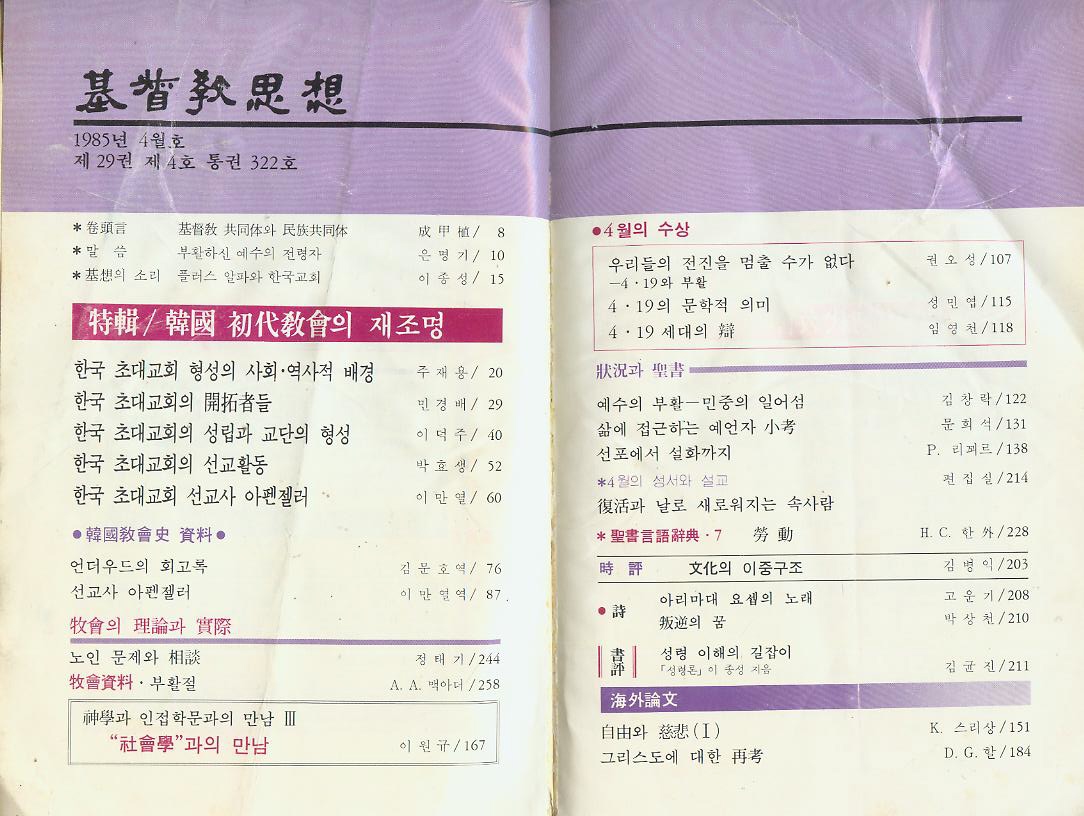 基督敎思想
1985년 4월호
제29권 제4호 통권 322호
* 卷頭言 基督敎 共同体와 民族共同体 成甲植/ 8
* 말 씀 부활하신 예수의 전령자 은명기/ 10
* 基想의 소리 플러스 알파와 한국교회 이종성/ 15
特輯/ 韓國 初代敎會의 재조명
한국 초대교회 형성의 사회·역사적 배경 주재용/ 20
한국 초대교회의 開拓者들 민경배/ 29
한국 초대교회의 성립과 교단의 형성 이덕주/ 40
한국 초대교회의 선교활동 박효생/ 52
한국 초대교회 선교사 아펜젤러 이만열/ 60
●韓國敎會史 資料●
언더우드의 회고록 김문호역/ 76
선교사 아펜젤러 이만열역/ 87
牧會의 理論과 實際
노인 문제와 相談 정태기/244
牧會資料·부활절 A. A. 맥아더/258
神學과 인접학문과의 만남 Ⅲ
“社會學”과의 만남 이원규/167
●4월의 수상
우리들의 전진을 멈출 수가 없다 권오성/107
—4·19와 부활
4·19의 문학적 의미 성민엽/115
4·19 세대의 辯 임영천/118
狀況과 聖書
예수의 부활—민중의 일어섬 김창락/122
삶에 접근하는 예언자 小考 문희석/131
선포에서 설화까지 P. 리꾀르/138
*4월의 성서와 설교 편집실/214
復活과 날로 새로워지는 속사람
* 聖書言語辭典·7 勞動 H. C. 한 外/228
時 評 文化의 이중구조 김병익/203
● 詩 아리마대 요셉의 노래 고운기/208
叛逆의 꿈 박상천/210
書評 성령 이해의 길잡이
「성령론」이 종성 지음 김균진/211
海外論文
自由와 慈悲(Ⅰ) K. 스리상/151
그리스도에 대한 再考 D. G. 할/184